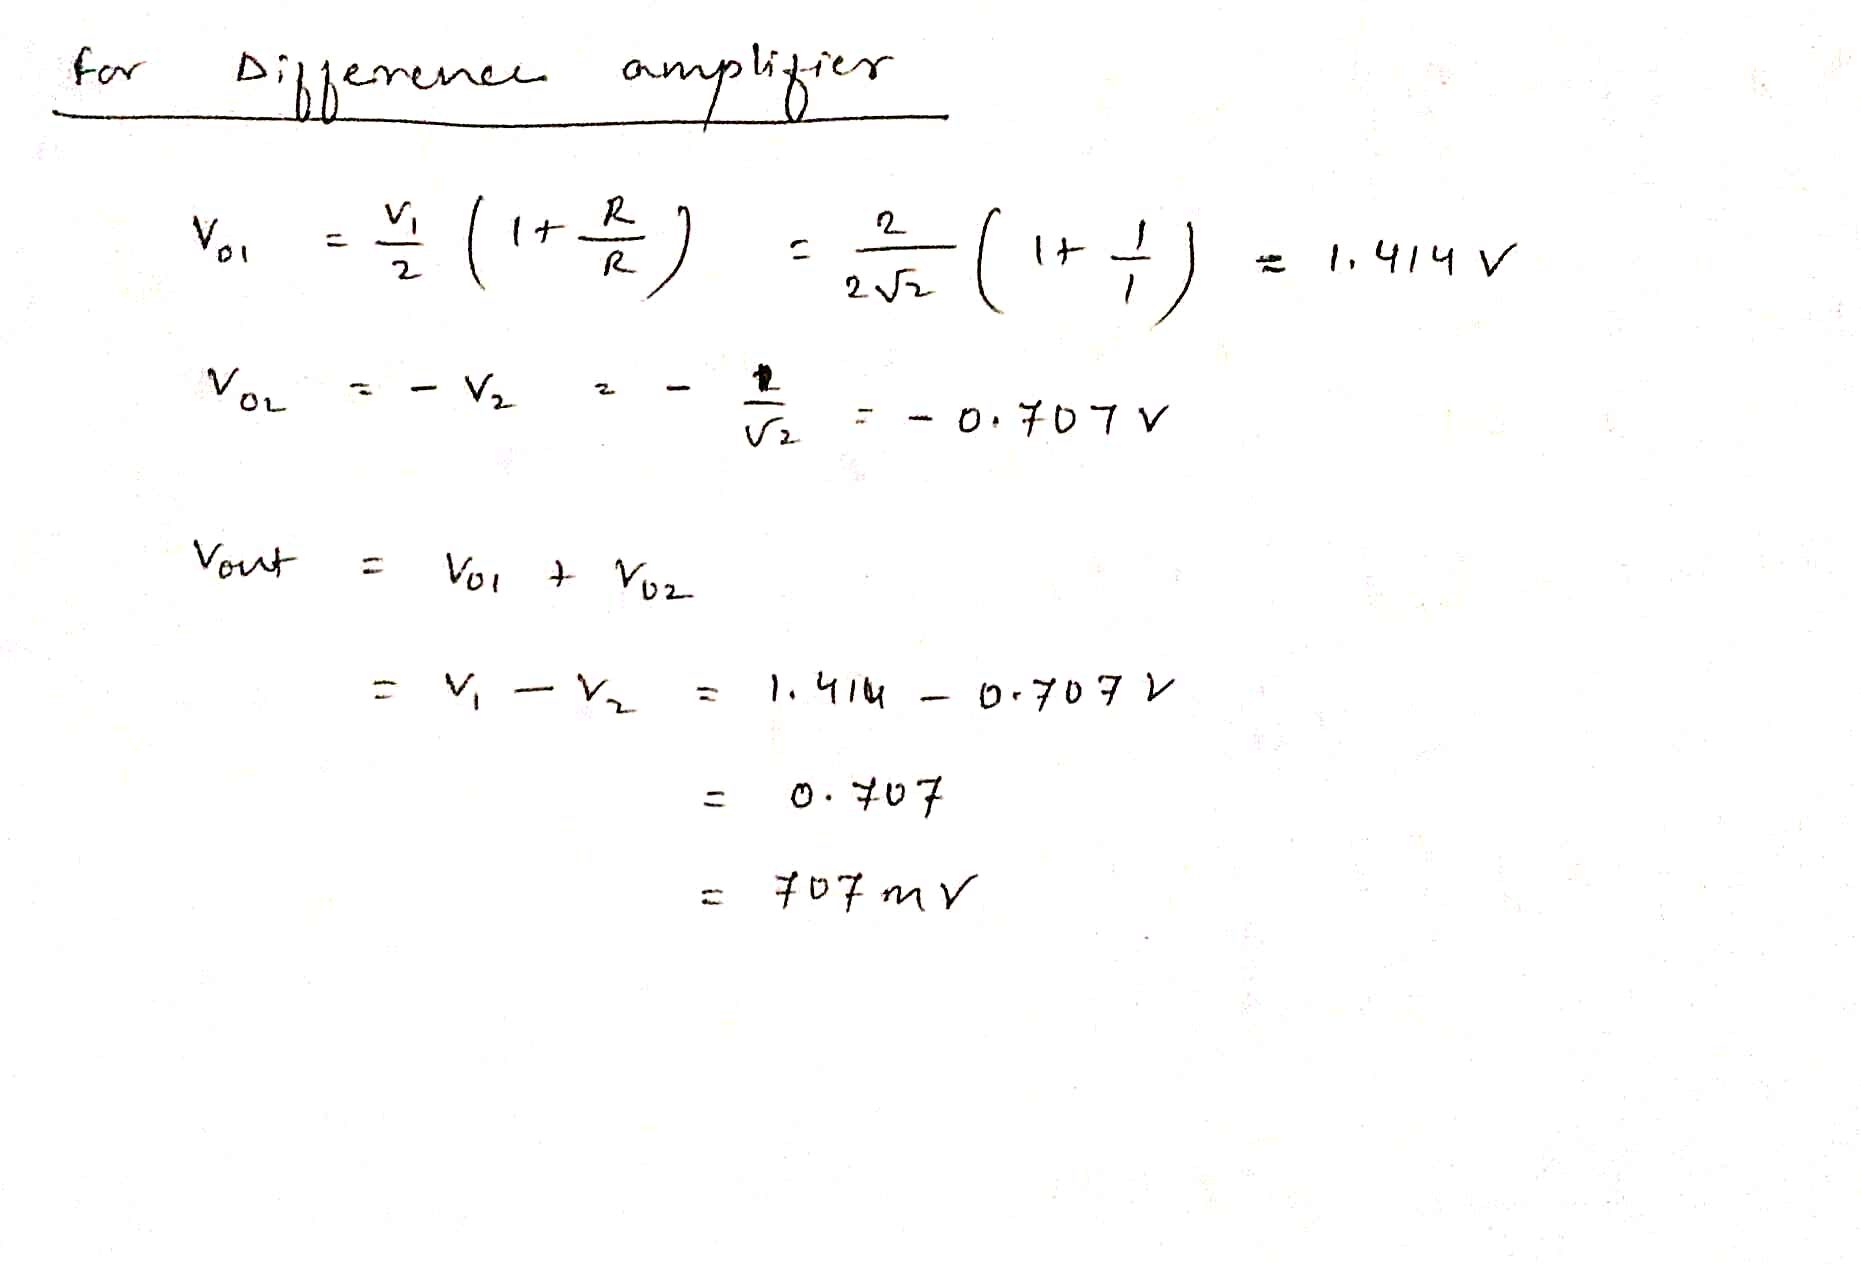 for Difference amplifier
V01 = V1/2 ( 1 + R/R ) = 2/2√2 ( 1 + 1/1 ) = 1.414 V
V02 = - V2 = - 1/√2 = - 0.707 V
Vout = V01 + V02
= V1 - V2 = 1.414 - 0.707 V
= 0.707
= 707 mV